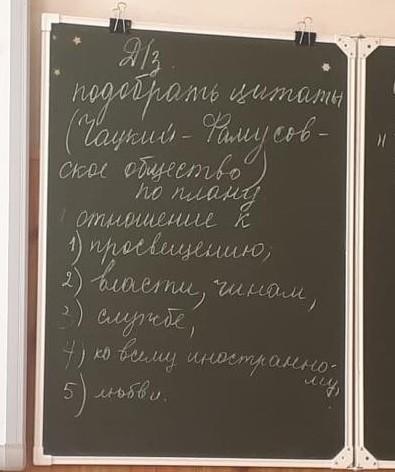 Д/з.
подобрать цитаты
(Чацкий - Фамусов-
ское общество)
по плану
отношение к
1) просвещению;
2) власти, чинам,
3) службе,
4) ко всему иностранно-
му,
5) любви.
н